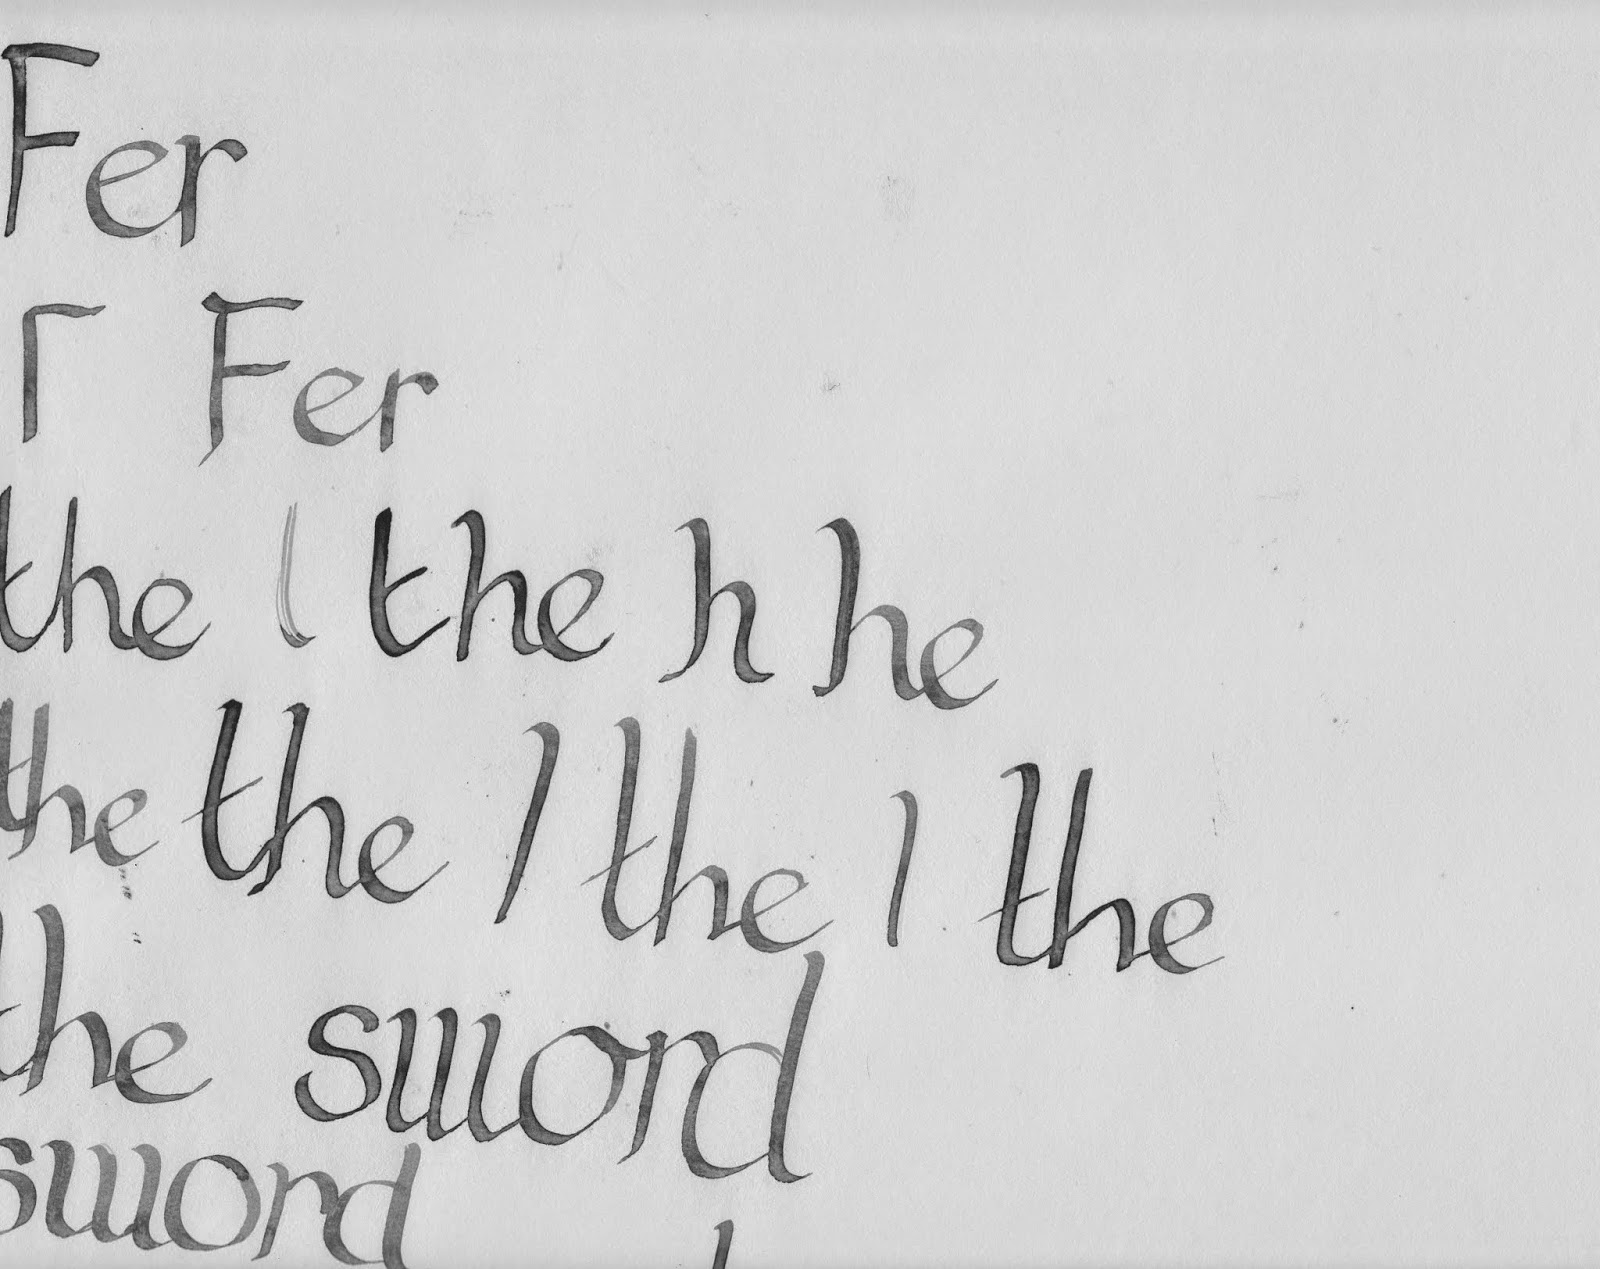 Fer
Γ Fer
the l the h he
the the l the l the
the sword
sword